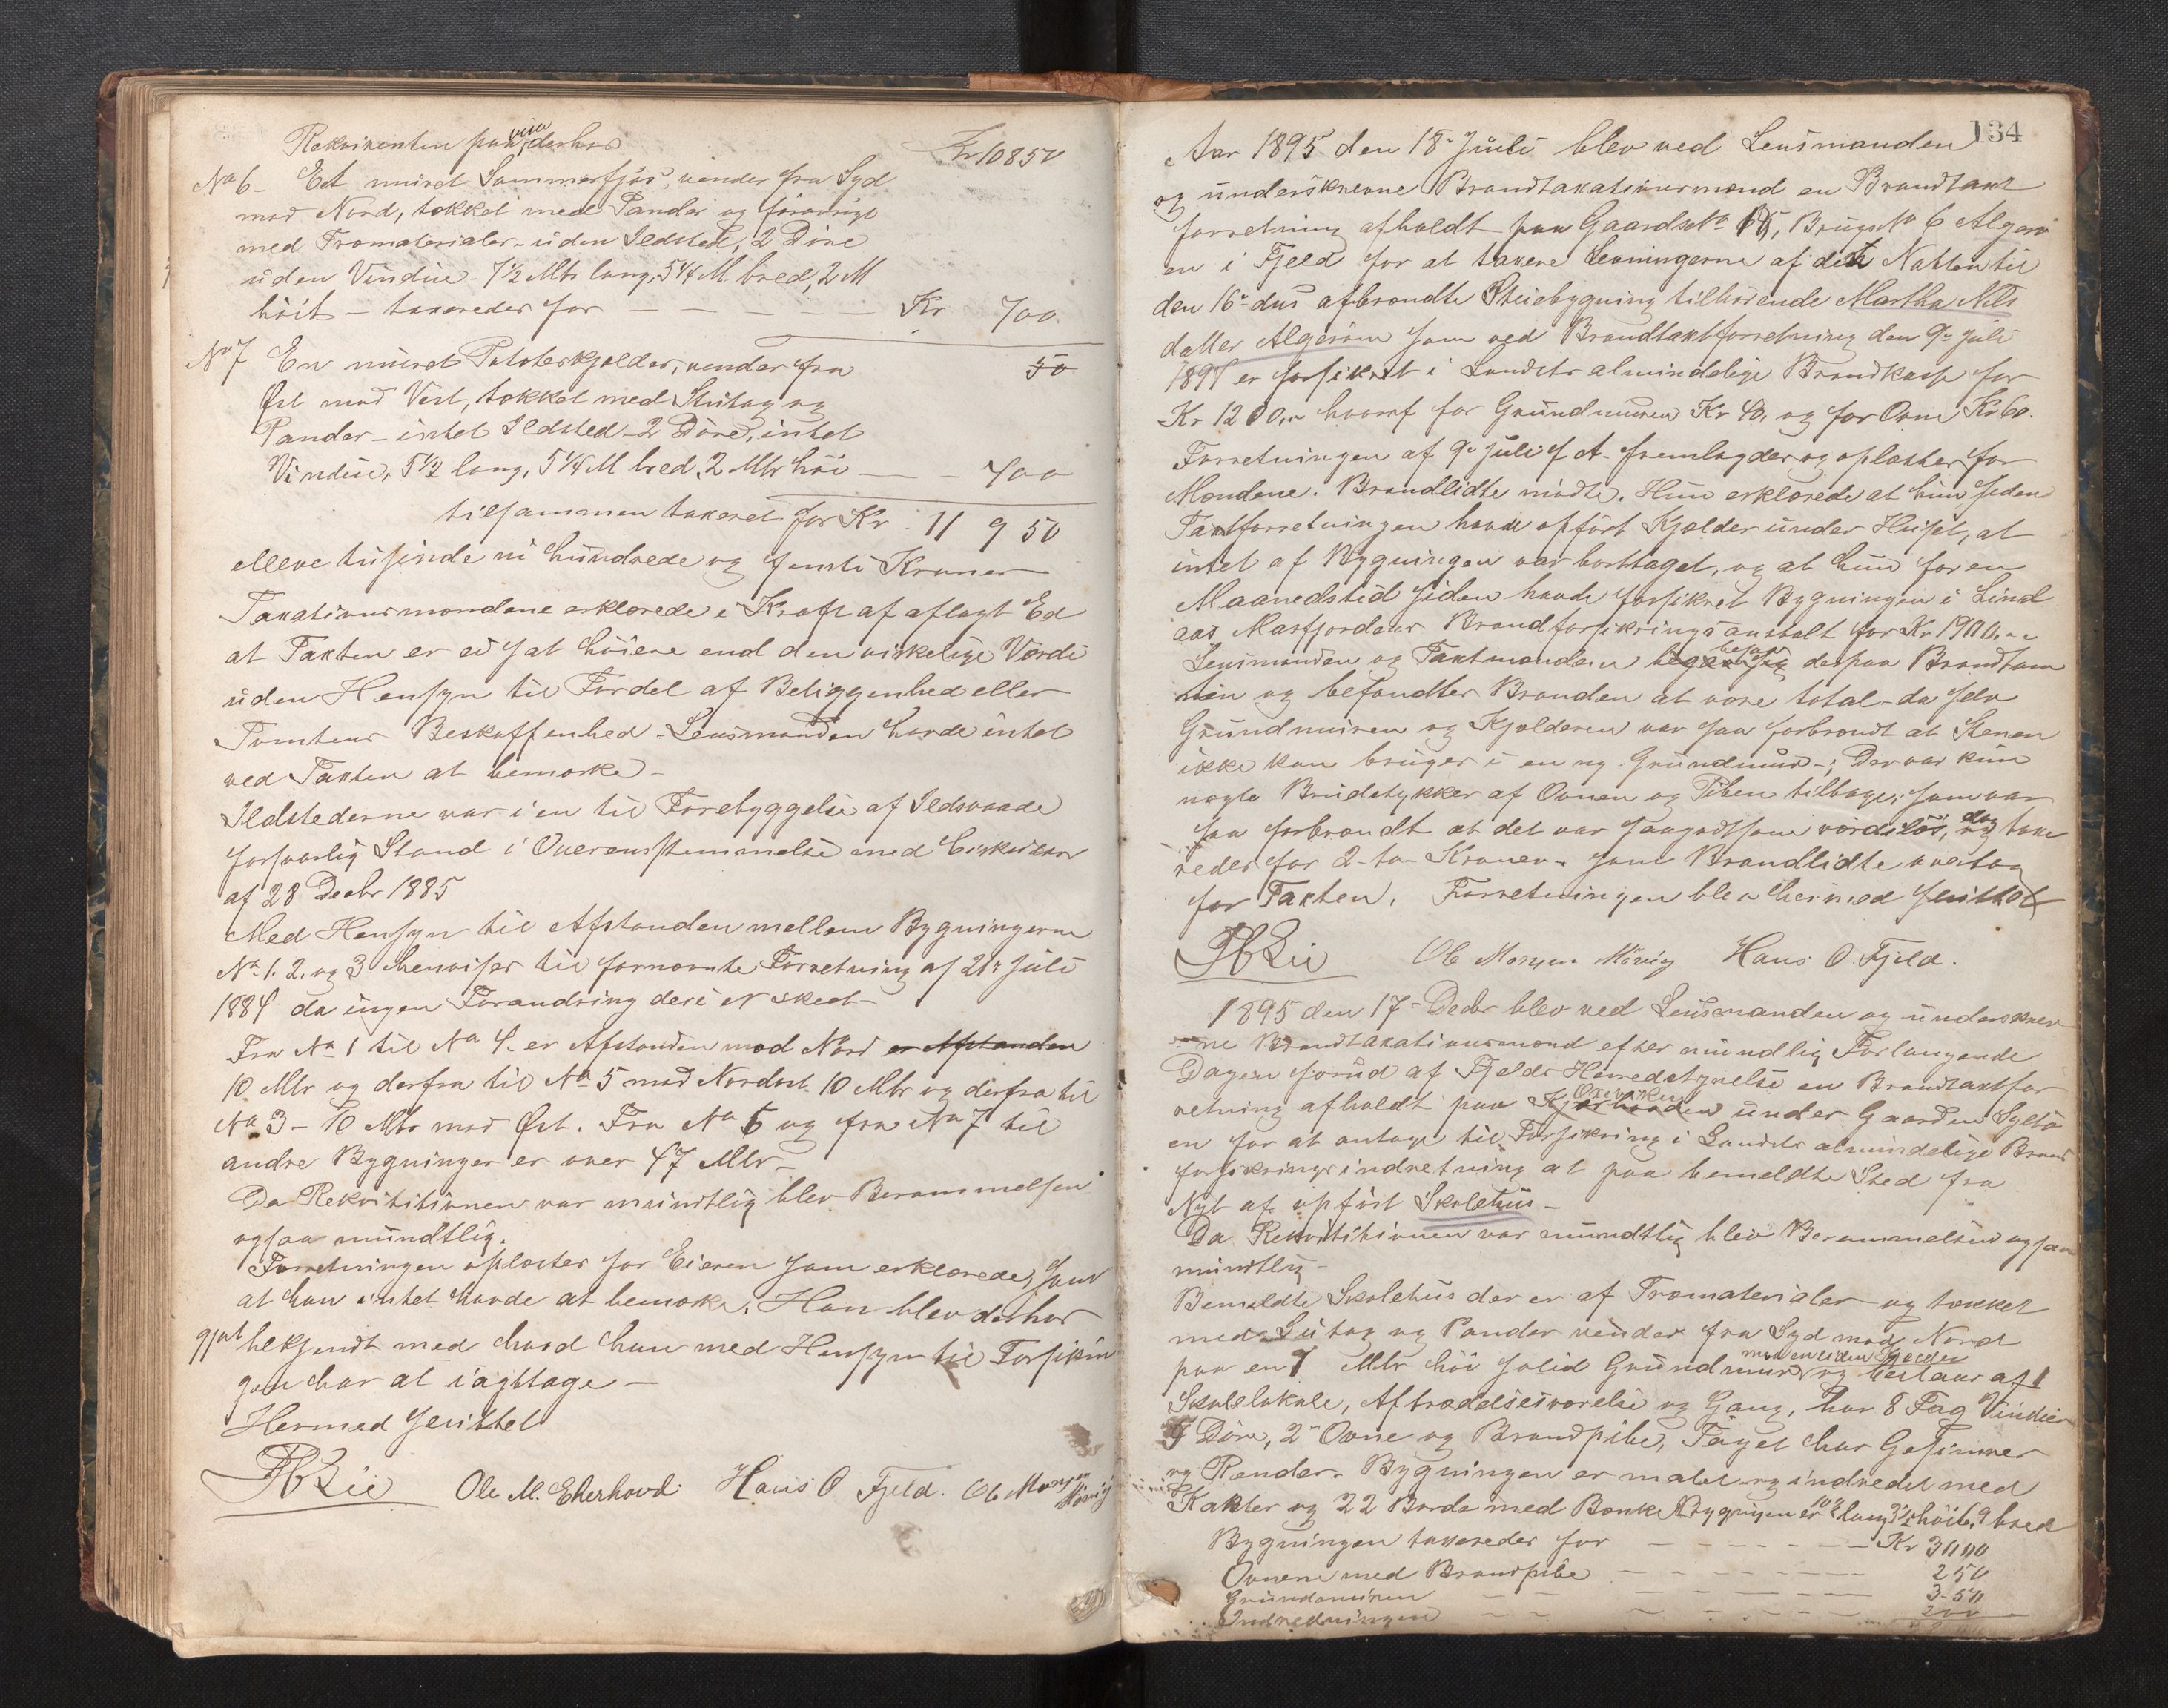 Rekvirenten paaviser derhos
Kr 10850
No 6 - Et muret Sommerfjøs, vender fra Syd
mod Nord, tækket med Pander og forøvrigt
med Træmaterialer - uden Ildsted, 2 Døre
uden Vindue - 7 1/2 Mtr lang, 5 1/4 M bred, 2 M
høit - taxeredes for - - - - - Kr 700
No 7 En muret Poteteskjelder, vender fra 50
Øst mod Vest, tækket med Stutag og
Pander - intet Ildsted - 2 Døre, intet
Vindue, 5 1/2 lang, 5 1/4 M bred, 2 Mtr høi - - 400
tilsammen taxeret for Kr 11 9 50
elleve tusinde ni hundrede og femti Kroner
Taxationsmændene erklærede i Kraft af aflagt Ed
at Taxten er ei sat høiere end den virkelige Værdi
uden Hensyn til Fordel af Beliggenhed eller
Tomtens Beskaffenhed - Lensmanden havde intet
ved Taxten at bemærke -
Ildstederne var i en til Forebyggelse af Ildsvaade
forsvarlig Stand i Overensstemmelse med Cirkulær
af 28 Decbr 1885
Med Hensyn til Afstanden mellem Bygningerne
No 1. 2. og 3 henvises til fornævnte Forretning af 21 Juli
1884 da ingen Forandring deri er skeet -
Fra No 1 til No 4. er Afstanden mod Nord er Afstanden
10 Mtr og derfra til No 5 mod Nordost 10 Mtr og derfra til
No 3 - 10 Mtr mod Øst. Fra No 6 og fra No 7 til
andre Bygninger er over 47 Mtr -
Da Rekvisitionen var mundtlig blev Berammelsen
ogsaa mundtlig.
Forretningen oplæstes for Eieren som erklærede, sant
at han intet havde at bemærke. Han blev derhos
gjort bekjendt med hvad han med Hensyn til Forsikrin
gen har at iagttage -
Hermed sluttet
Lie Ole M. Ekerhovd. Hans O Fjeld. Ole Monsen Møvig
134
Aar 1895 den 18 Juli blev ved Lensmanden
og underskrevne Brandtaxationsmænd en Brandtaxt
forretning afholdt paa Gaards No 15, Brugs No 6 Algerø
en i Fjeld for at taxere Levningerne af det Natten til
den 16 ds afbrændte Stuebygning tilhørende Martha Nils
datter Algerøen som ved Brandtaxtforretning den 9 Juli
1894 er forsikret i Landets almindelige Brandkasse for
Kr 1200,- hvoraf for Grundmuren Kr 40, og for Ovne Kr 60.
Forretningen af 9 Juli f A. fremlagdes og oplæstes for
Mændene. Brandlidte mødte. Hun erklærede at hun siden
Taxtforretningen havde opført Kjælder under Huset, at
intet af Bygningen var borttaget, og at hun for en
Maanedstid siden havde forsikret Bygningen i Lind
aas Masfjordens Brandforsikringsanstalt for Kr 1900,--
Lensmanden og Taxtmændene besaa derpaa Brandtom
ten og befandtes Branden at være total - da selv
Grundmuren og Kjælderen var saa forbrændt at Stenen
ikke kan bruges i en ny Grundmur -; Der var kun
nogle Brudstykker af Ovnen og Piben tilbage, som var
saa forbrændt at det var saagodtsom værdiløs, dog taxe
redes for 2 - to - Kroner - som Brandlidte overtog
for Taxten. Forretningen blev hermed sluttet
Lie Ole Monsen Møvig Hans O. Fjeld.
1895 den 17 Decbr blev ved Lensmanden og underskrev
ne Brandtaxationsmænd efter mundtlig Forlangende
Dagen forud af Fjelds Herredstyrelse en Brandtaxtfor
retning afholdt paa under Gaarden Syltø
en for at antage til Forsikring i Landets almindelige Brand
forsikringsindretning at paa bemeldte Sted fra
Nyt af opført Skolehus -
Da Rekvisitionen var mundtlig blev Berammelsen ogsaa
mundtlig -
Bemeldte Skolehus der er af Træmaterialer og tækket
med Sutag og Pander vender fra Syd mod Nord
paa en 1 Mtr høi solid Grundmur med en liden Kjelder og bestaar af 1
Skolelokale, Aftrædelsesværelse og Gang, har 8 Fag Vinduer
5 Døre, 2 Ovne og Brandpibe, Taget har Gesimser
og Render. Bygningen er malet og indredet med
Karter og 22 Borde med Bænke. Bygningen er 10 1/2 lang, 3 1/2 høit, 9 bred
Bygningen taxeredes for - - - - - - - Kr 3000
Ovnene med Brandpibe - - - - - - - 250
Grundmuren - - - - - - 350
Indredningen - - - - - - 200